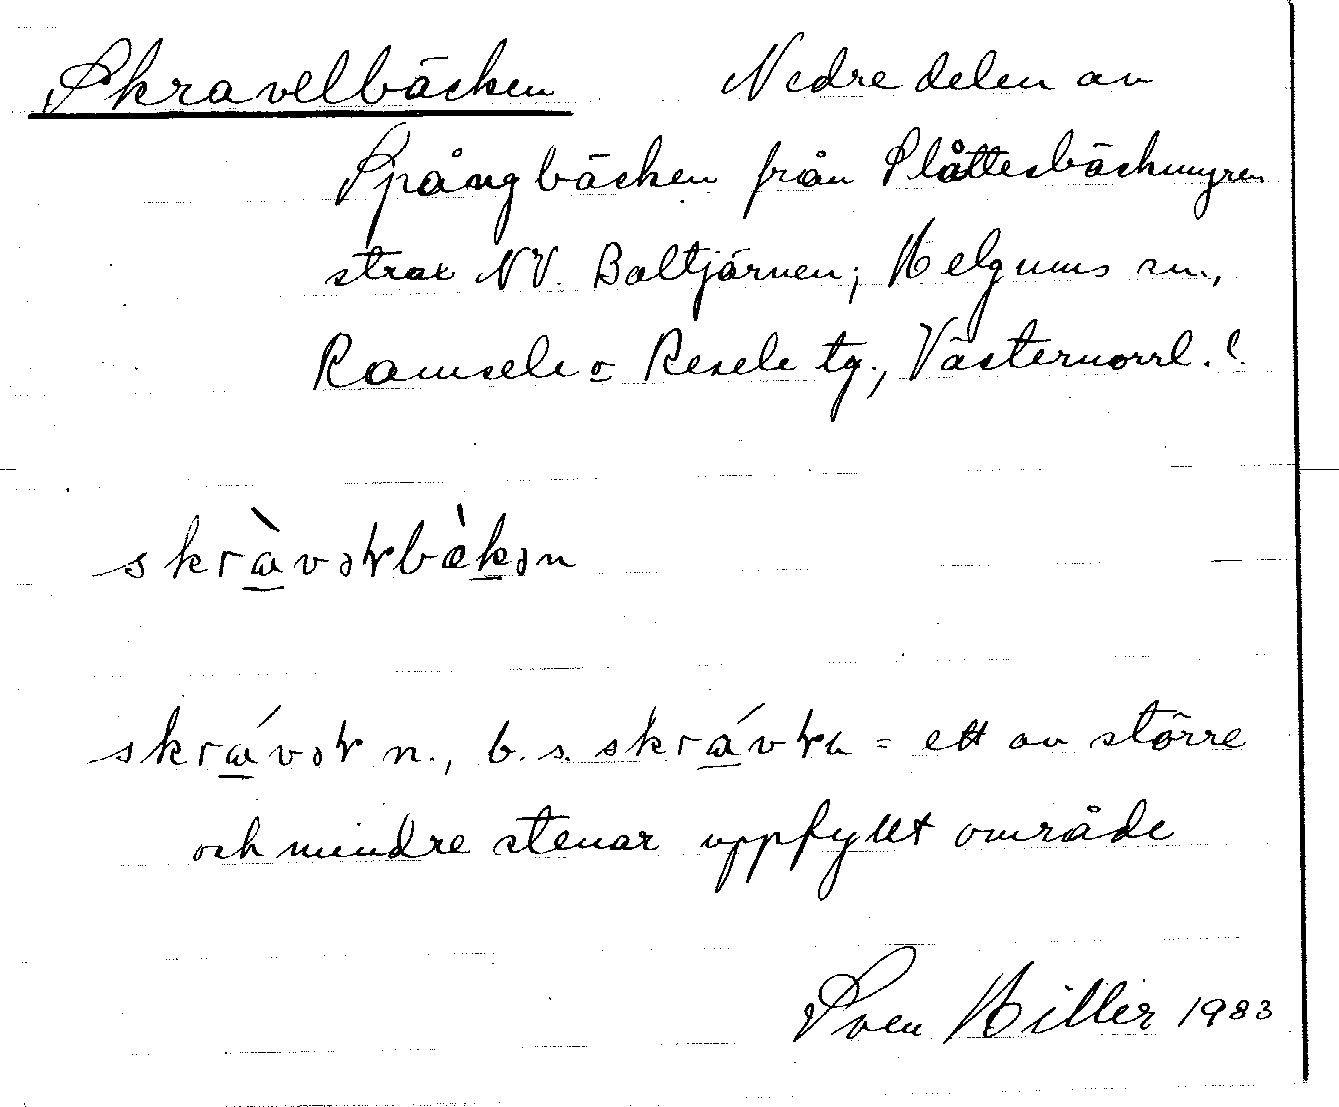 Skravelbäcken Nedre delen av
Spångbäcken från Slåttesbäckmyren
strax NV. Baltjärnen; Helgums sn.,
Ramsele o Resele tg., Västernorrl. l.
skràvəɫbàkən
skrávəɫ n., b. s. skrávɫɐ = ett av större
och mindre stenar uppfyllt område
Sven Hiller 1983